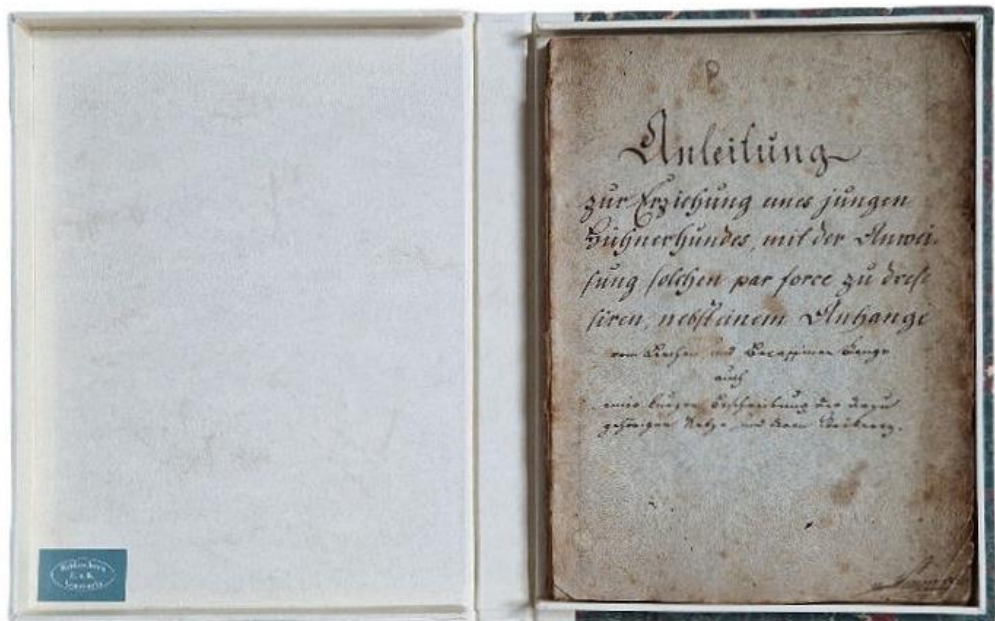 Anleitung
zur Erziehung eines jungen
Hühnerhundes, mit der Anwei-
sung solchen par force zu dres-
siren, nebst einem Anhange
vom Lerchen und Becassinen Fange
auch
einer kurzen Beschreibung der dazu
gehörigen Netze und deren